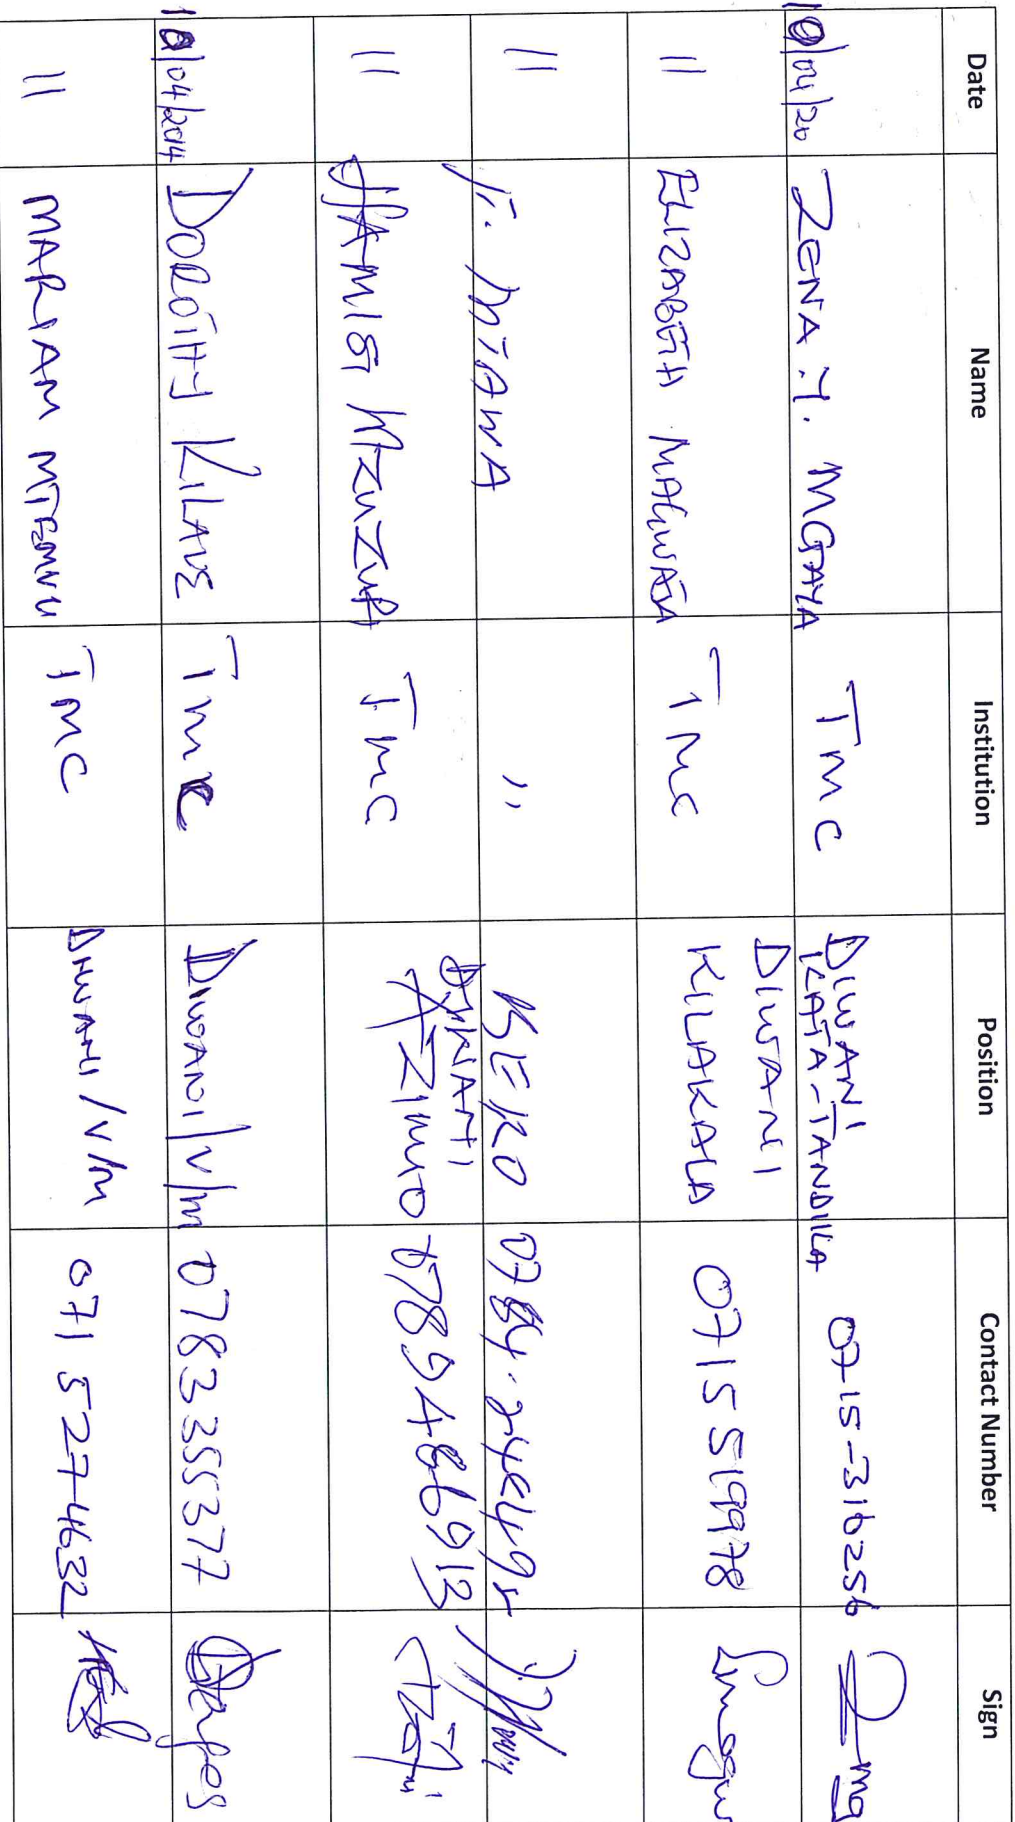 Date Name Institution Position Contact Number Sign
10/04/20 ZENA .Y. MGAYA TMC DIWANI KATA-TANDIKA 0715-316256
11 ELIZABETH MAGWAJA TMC DIWANI KILAKALA 0715519978
11 " 0784.
11 HAMISI MZUZURI TMC DIWANI AZIMIO 0789486913
10/04/2014 DOROTHY KILAVE TMC DIWANI/V/M 0783355377
11 MARIAM MTEMVU TMC DIWANI/V/M 0715274632